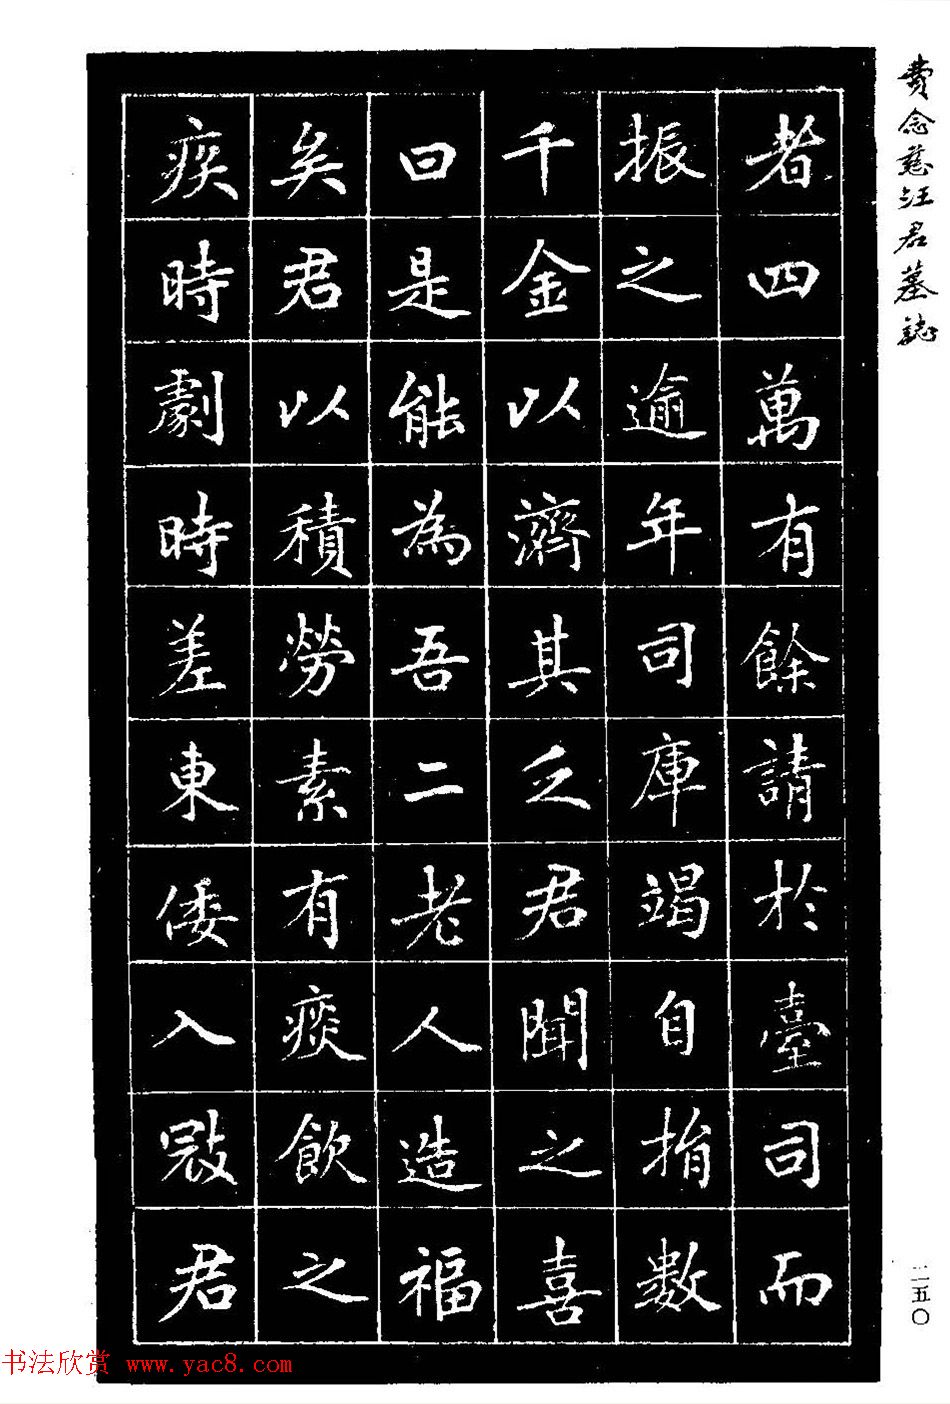 費念慈汪君墓誌
者四萬有餘請於臺司而
振之逾年司庫竭自捐數
千金以濟其乏君聞之喜
曰是能為吾二老人造福
矣君以積勞素有痰飲之
疾時劇時差東倭入寇君
二五〇
书法欣赏 www.yac8.com